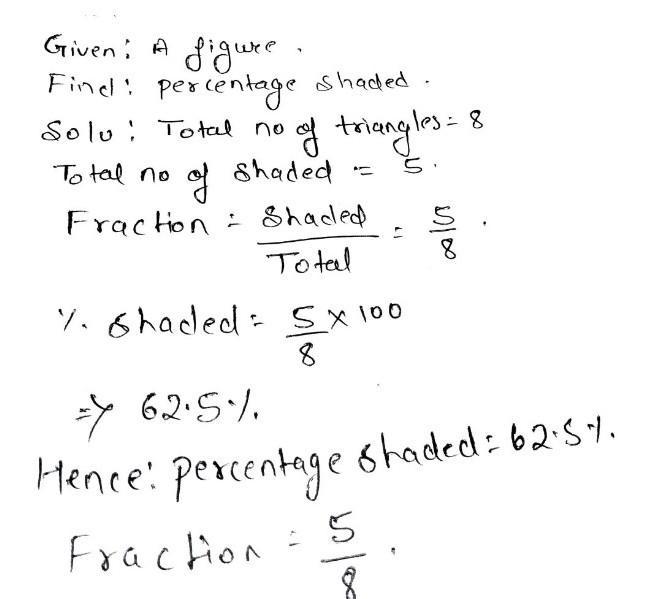 Given: A figure.
Find: percentage shaded.
Solu: Total no of triangles = 8
Total no of shaded = 5.
Fraction = Shaded/Total = 5/8.
% shaded = 5/8 × 100
⇒ 62.5%.
Hence: percentage shaded = 62.5%.
Fraction = 5/8.